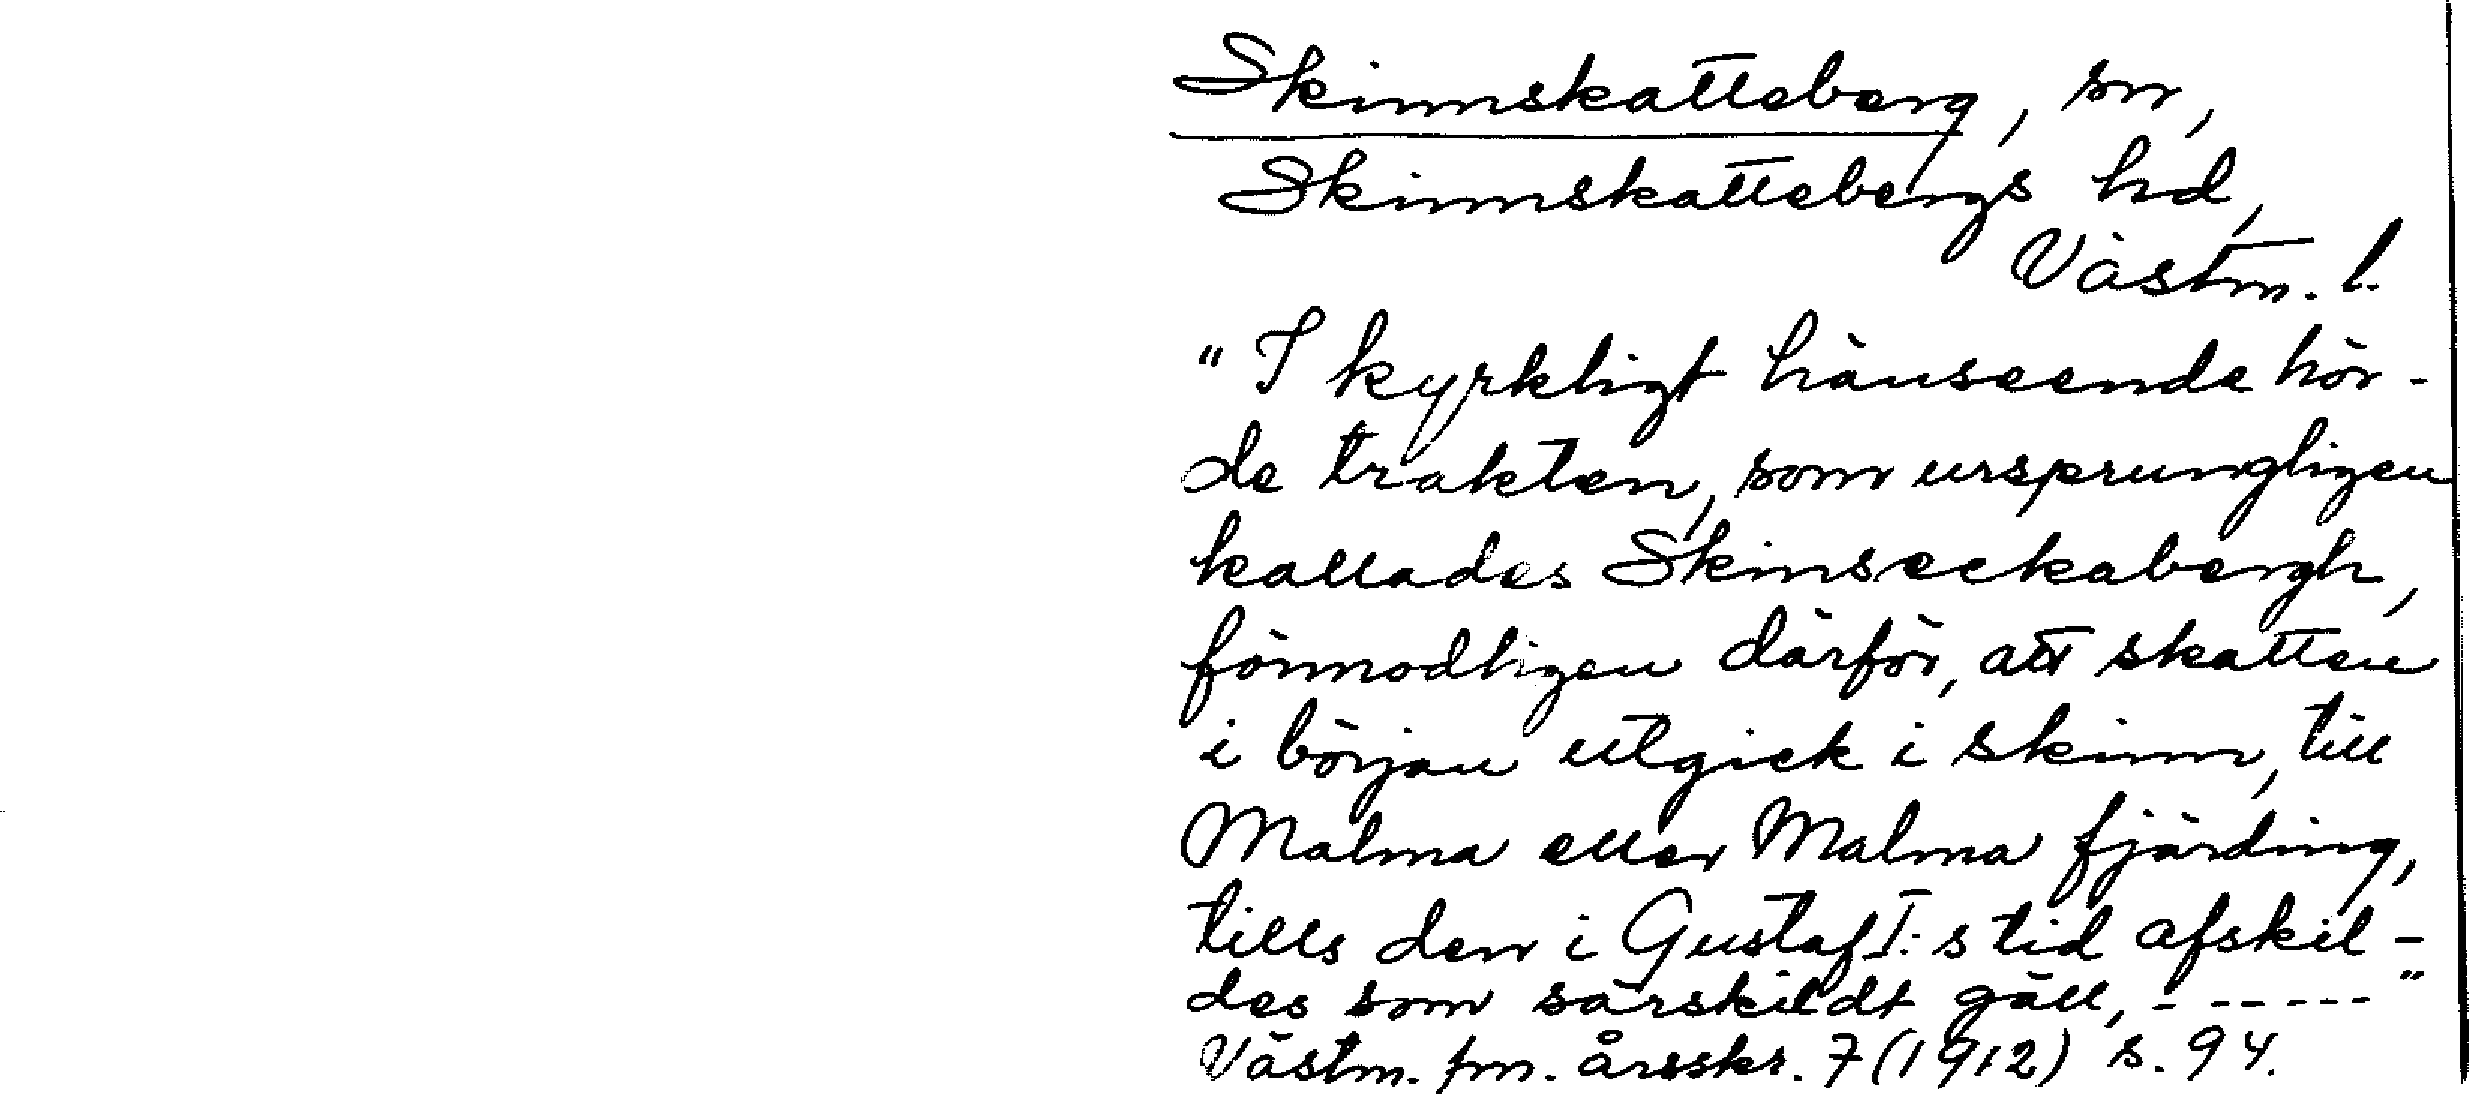 Skinnskatteberg, sn,
Skinnskattebergs hd,
Västm. l.
"I kyrkligt hänseende hör-
de trakten, som ursprungligen
kallades Skinseckabergh,
förmodligen därför, att skatten
i början utgick i skinn, till
Malma eller Malma fjärding,
tills den i Gustaf I:s tid afskil-
des som särskildt gäll, - - - - - -"
Västm. fm. årsskr. 7 (1912) s. 94.